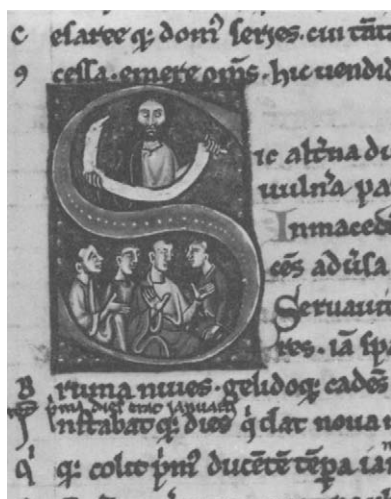 c esaree q: domꝰ series. cui tāta
ꝯ cessa. emere om̄s. hic uendid
S ic alt̄na du
uuln̄a pa
Inmaced
cēs adūsa
Seruauit
res. iā spa
B ruma niues. gelidoq: cadēs
I nstabat q: dies q̇ dat noua n
q̇ q: colit p̄mꝰ ducētē tēpa ian